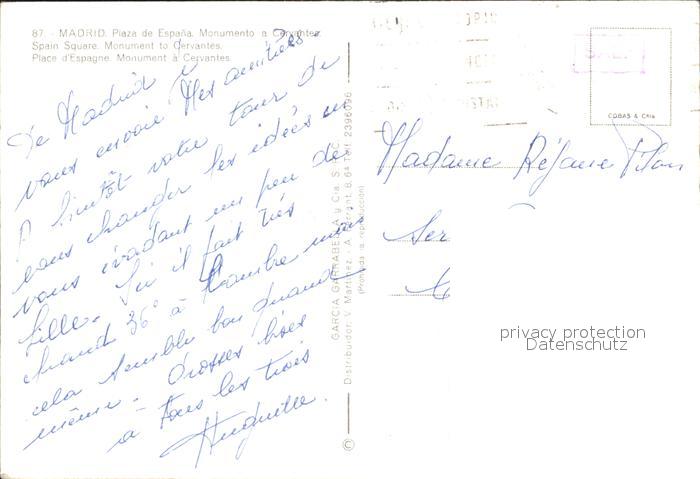 87. - MADRID. Plaza de España. Monumento a Cervantes.
Spain Square. Monument to Cervantes.
Place d'Espagne. Monument à Cervantes.
De Madrid je
vous envoie mes amitiés
A bientôt votre tour de
vous changer les idées en
vous évadant un peu de
Lille. Ici il fait très
chaud 36° à l'ombre mais
cela semble bon quand
même. Grosses bises
à tous les trois
GARCIA GARRABELLA y Cia. S.
Distribuidor: V. Martinez - 64 Telf. 2396096
(Prohibida la reproducción)
©
COBAS & Cría
Madame Réjane
Ser
privacy protection
Datenschutz